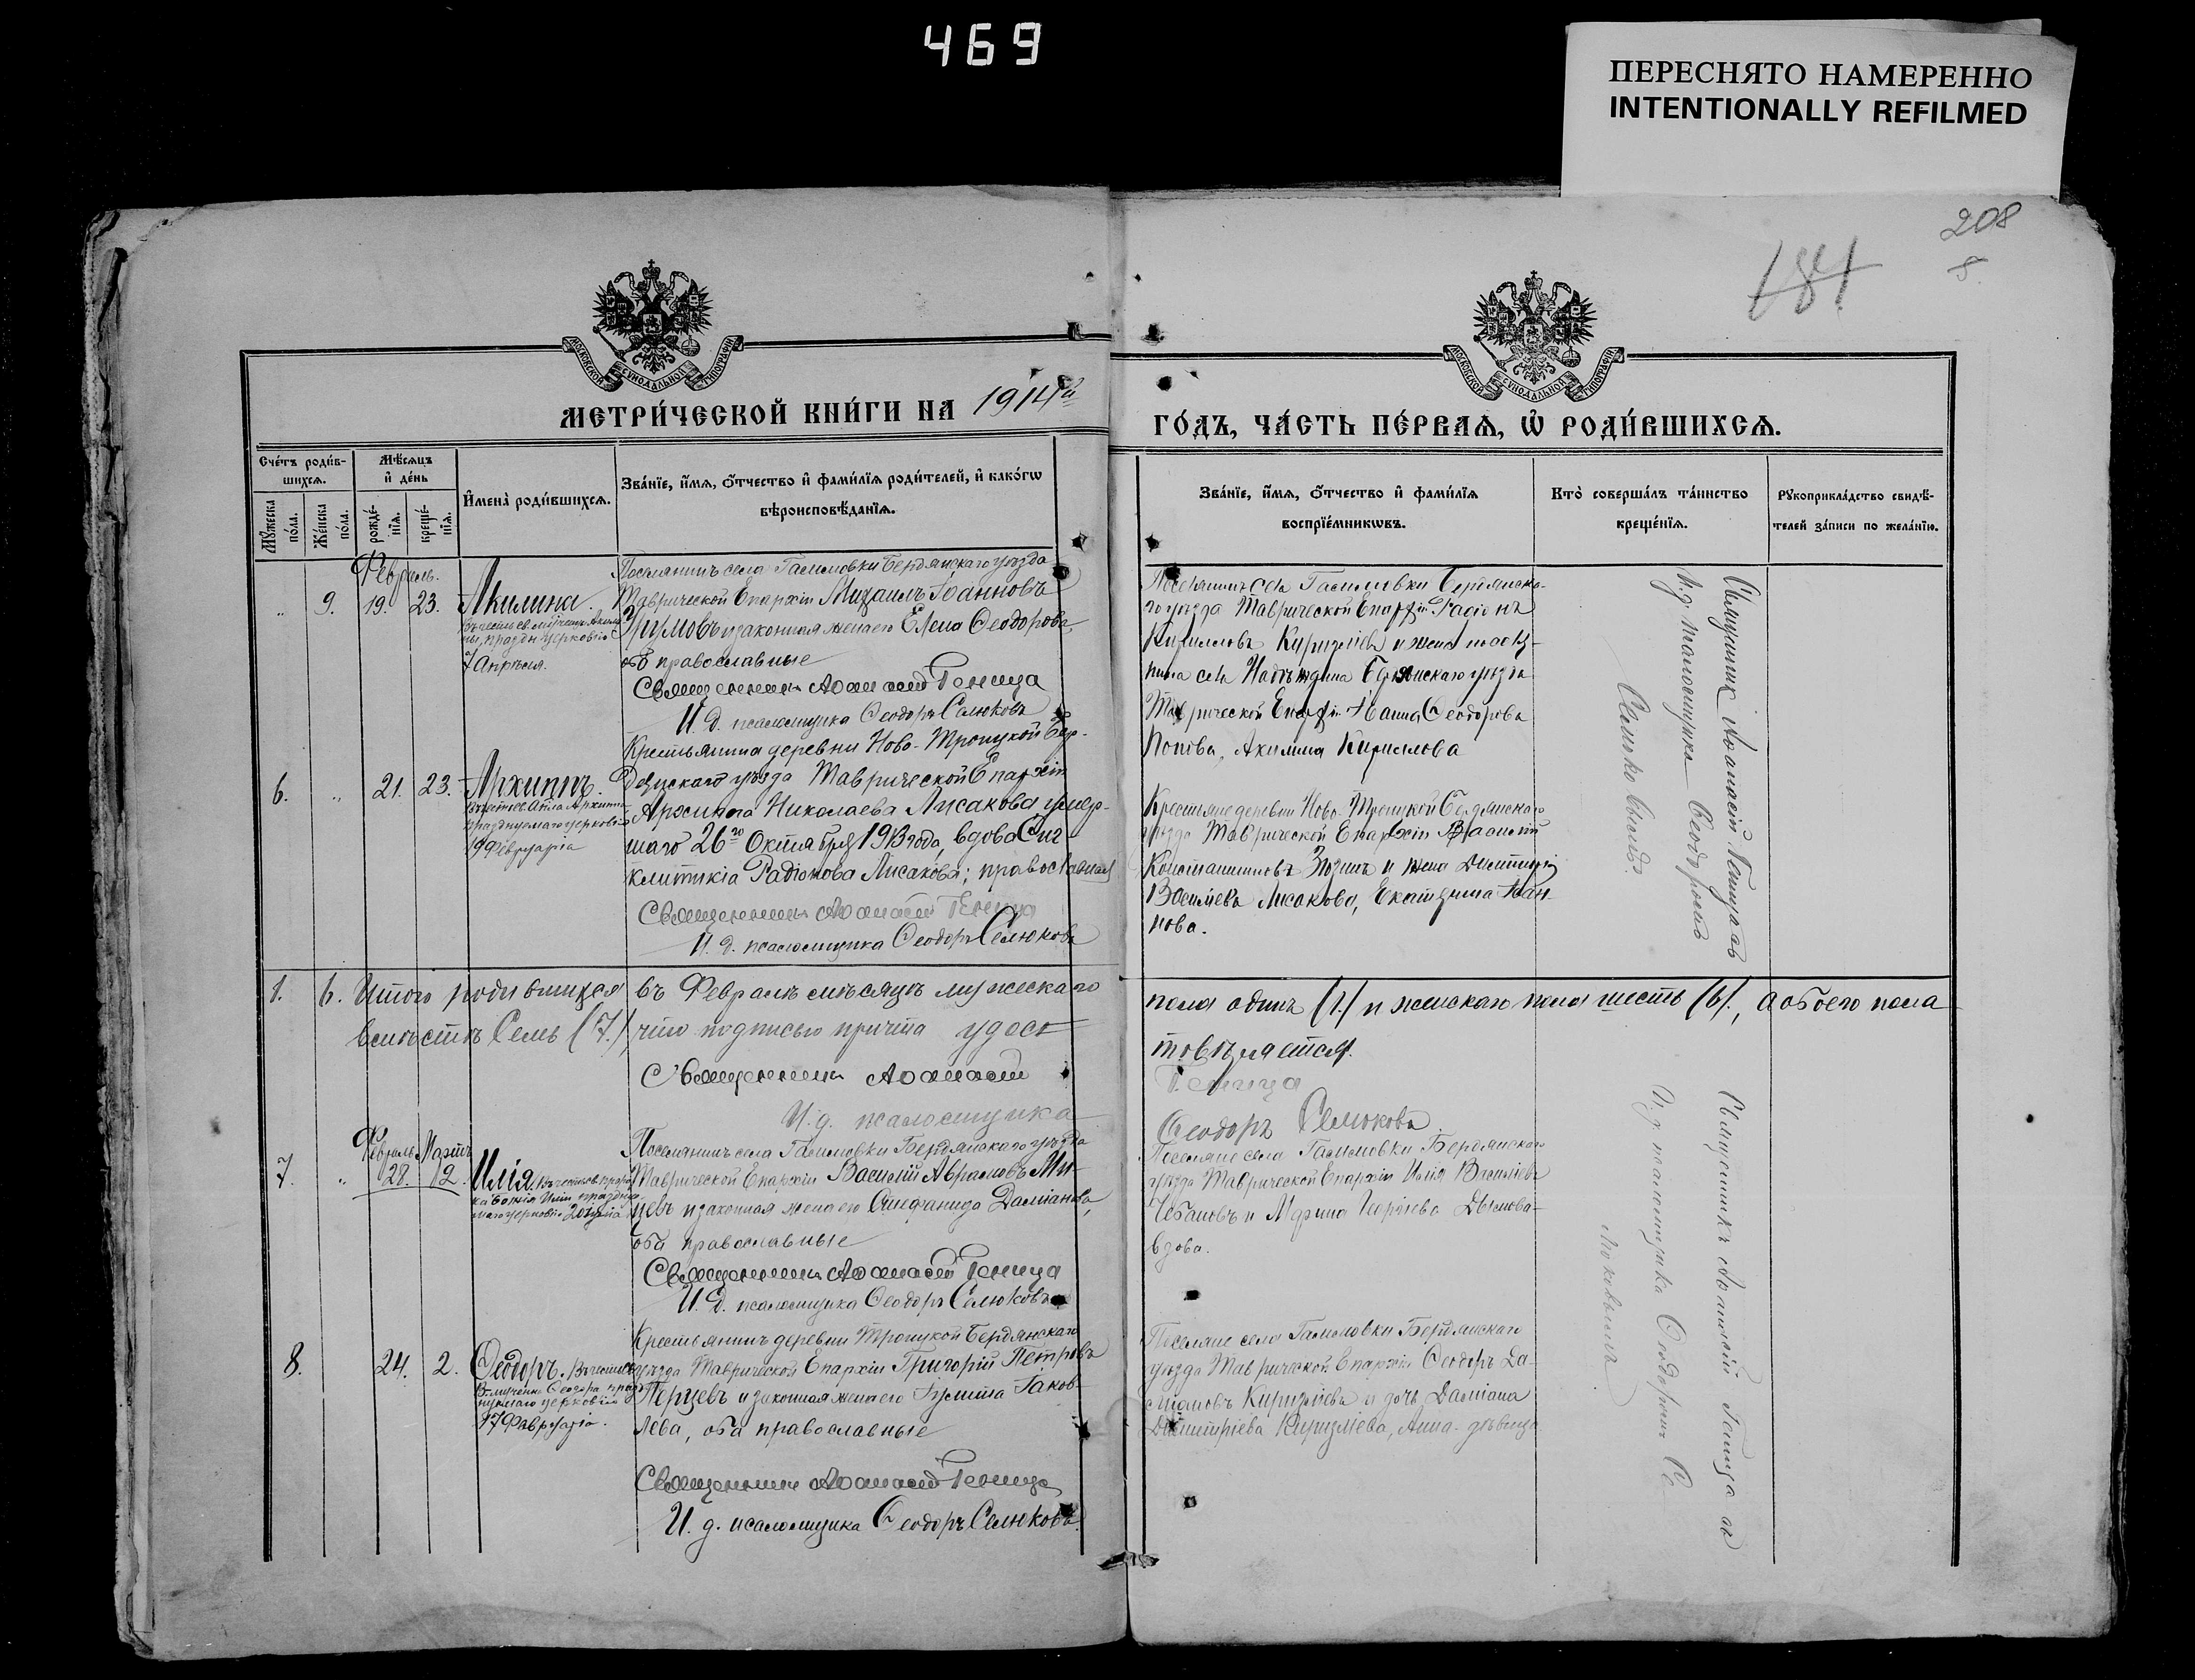 469
ПЕРЕСНЯТО НАМЕРЕННО
INTENTIONALLY REFILMED
208
5
181
МОСКОВСКОЙ СѴНОДАЛЬНОЙ ТИПОГРАФІИ
МОСКОВСКОЙ СѴНОДАЛЬНОЙ ТИПОГРАФІИ
МЕТРИ́ЧЕСКОЙ КНИ́ГИ НА 1914й
ГО́ДЪ, ЧА́СТЬ ПЕ́РВАѦ, Ѡ РОДИ́ВШИХСѦ.
Сче́тъ роди́в-
шихсѧ.
Мѣ́сѧцъ
и҆ де́нь
Мꙋжеска по́ла.
Же́нска по́ла.
рожде́-
нїѧ.
креще́-
нїѧ.
И҆мена̀ роди́вшихсѧ.
Зва́нїе, и҆́мѧ, ѻ҆́тчество и҆ фами́лїѧ роди́телей, и҆ како́гѡ
вѣроисповѣ́данїѧ.
Зва́нїе, и҆́мѧ, ѻ҆́тчество и҆ фами́лїѧ
воспрїе́мникѡвъ.
Кто̀ соверша́лъ та́инство
креще́нїѧ.
Рꙋкоприкла́дство свидѣ́-
телей за́писи по жела́нїю.
Февраль.
„ 9. 19. 23. Акилина.
7 Апрѣля.
Поселянинъ села Гамовки Бердянскаго уѣзда
Таврической Епархіи Михаилъ Іоанновъ
и законная жена его Елена Ѳеодорова,
оба православные
Священникъ Аѳанасій Геница
И. д. псаломщика Ѳеодоръ Селюковъ
Поселянинъ села Гамовки Бердянска-
го уѣзда Таврической Епархіи Радіонъ
Кирилловъ и жена поселя-
нина села Бердянскаго уѣзда
Таврической Епархіи Іоанна Ѳеодорова
Попова, Акилина Кириллова
Священникъ Аѳанасій Геница съ
И. д. псаломщика Ѳеодоромъ
6. „ 21. 23. Архиппъ.
19 Февруарія
Крестьянина деревни Ново-Троицкой Бер-
дянскаго уѣзда Таврической Епархіи
Николаева Лисакова умер-
шаго 26го Октября 1913 года, вдова Син-
клитикія Радіонова Лисакова; православная
Священникъ Аѳанасій Геница
И. д. псаломщика Ѳеодоръ Селюковъ
Крестьяне деревни Ново-Троицкой Бердянскаго
уѣзда Таврической Епархіи
Константиновъ и жена Димитрія
Васильева Лисакова, Екатерина Іоан-
нова.
1. 6. Итого родившихся въ Февралѣ мѣсяцѣ мужескаго
пола одинъ (1.) и женскаго пола шесть (6)., а обоего пола
вмѣстѣ семь (7.), что подписью причта удосто-
товѣряется.
Священникъ Аѳанасій
Геница
И. д. псаломщика
Ѳеодоръ Селюковъ.
Февраль. Мартъ
7. „ 28. 2. Илія.
20 Іюлія
Поселянинъ села Гамовки Бердянскаго уѣзда
Таврической Епархіи Василій Аврамовъ Ми-
цевъ и законная жена его Стефанида Даміанова,
оба православные
Священникъ Аѳанасій Геница
И. д. псаломщика Ѳеодоръ Селюковъ
Поселяне села Гамовки Бердянскаго
уѣзда Таврической Епархіи Илія Васильевъ
Чебановъ и Марина Георгіева Дымова-
вдова.
Священникъ Аѳанасій Геница съ
И. д. псаломщика Ѳеодоромъ Се-
люковымъ
8. 24. 2. Ѳеодоръ.
17 Февруарія.
Крестьянинъ деревни Троицкой Бердянскаго
уѣзда Таврической Епархіи Григорій Петровъ
Перцевъ и законная жена его Іулитта Іаков-
лева, оба православные
Священникъ Аѳанасій Геница
И. д. псаломщика Ѳеодоръ Селюковъ.
Поселяне села Гамовки Бердянскаго
уѣзда Таврической Епархіи Ѳеодоръ Да-
міановъ и дочь Даміана
Димитріева Анна-дѣвица